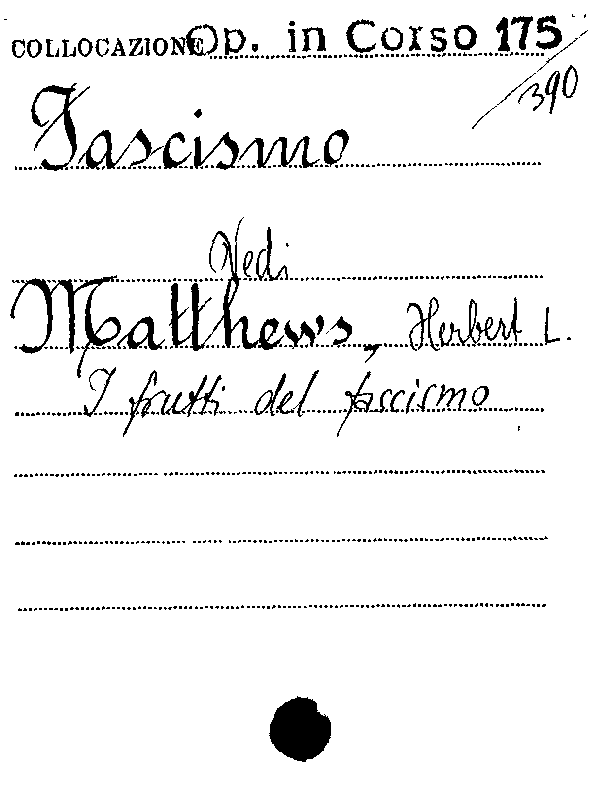 COLLOCAZIONE Op. in Corso 175
/390
Fascismo
Vedi
Matthews, Herbert L.
I frutti del fascismo